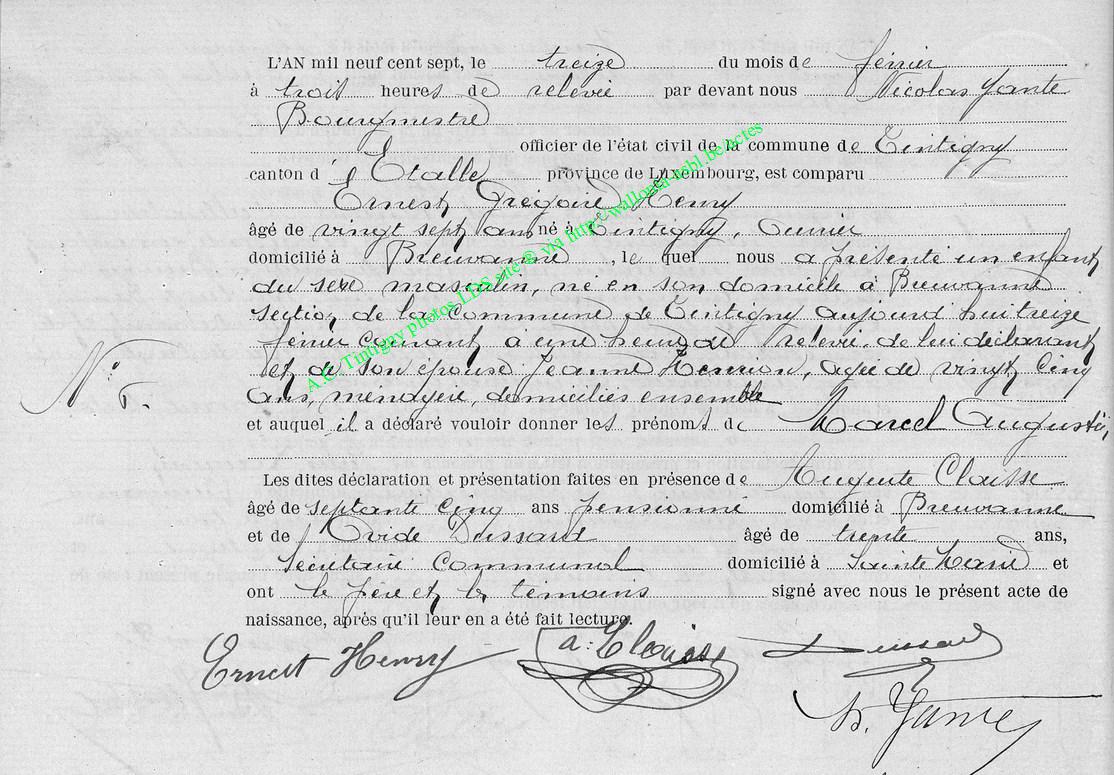 L'AN mil neuf cent sept, le treize du mois de février
à trois heures de relevée par devant nous Nicolas Yante
Bourgmestre
officier de l'état civil de la commune de Tintigny
canton d'Etalle province de Luxembourg, est comparu
Ernest Grégoire Henry
âgé de vingt sept ans né à Tintigny,
domicilié à Breuvanne, le quel nous a présenté un enfant
du sexe masculin, né en son domicile à Breuvanne
section de la commune de Tintigny aujourd'hui treize
février courant à cinq heures de relevée, de lui déclarant
et de son épouse Jeanne Henrion, agée de vingt cinq
ans, ménagère, domiciliés ensemble
N° 6.
et auquel il a déclaré vouloir donner les prénoms de Marcel Augustin,
Les dites déclaration et présentation faites en présence de Auguste Claisse
âgé de septante cinq ans pensionné domicilié à Breuvanne
et de Ovide Dussard âgé de trente ans,
Secrétaire Communal domicilié à Sainte Marie et
ont le père et les témoins signé avec nous le présent acte de
naissance, après qu'il leur en a été fait lecture.
Ernest Henry a. Claisse Dussard
N. Yante
A.C. Tintigny photos LDS site © via http://wallonia-asbl.be/actes